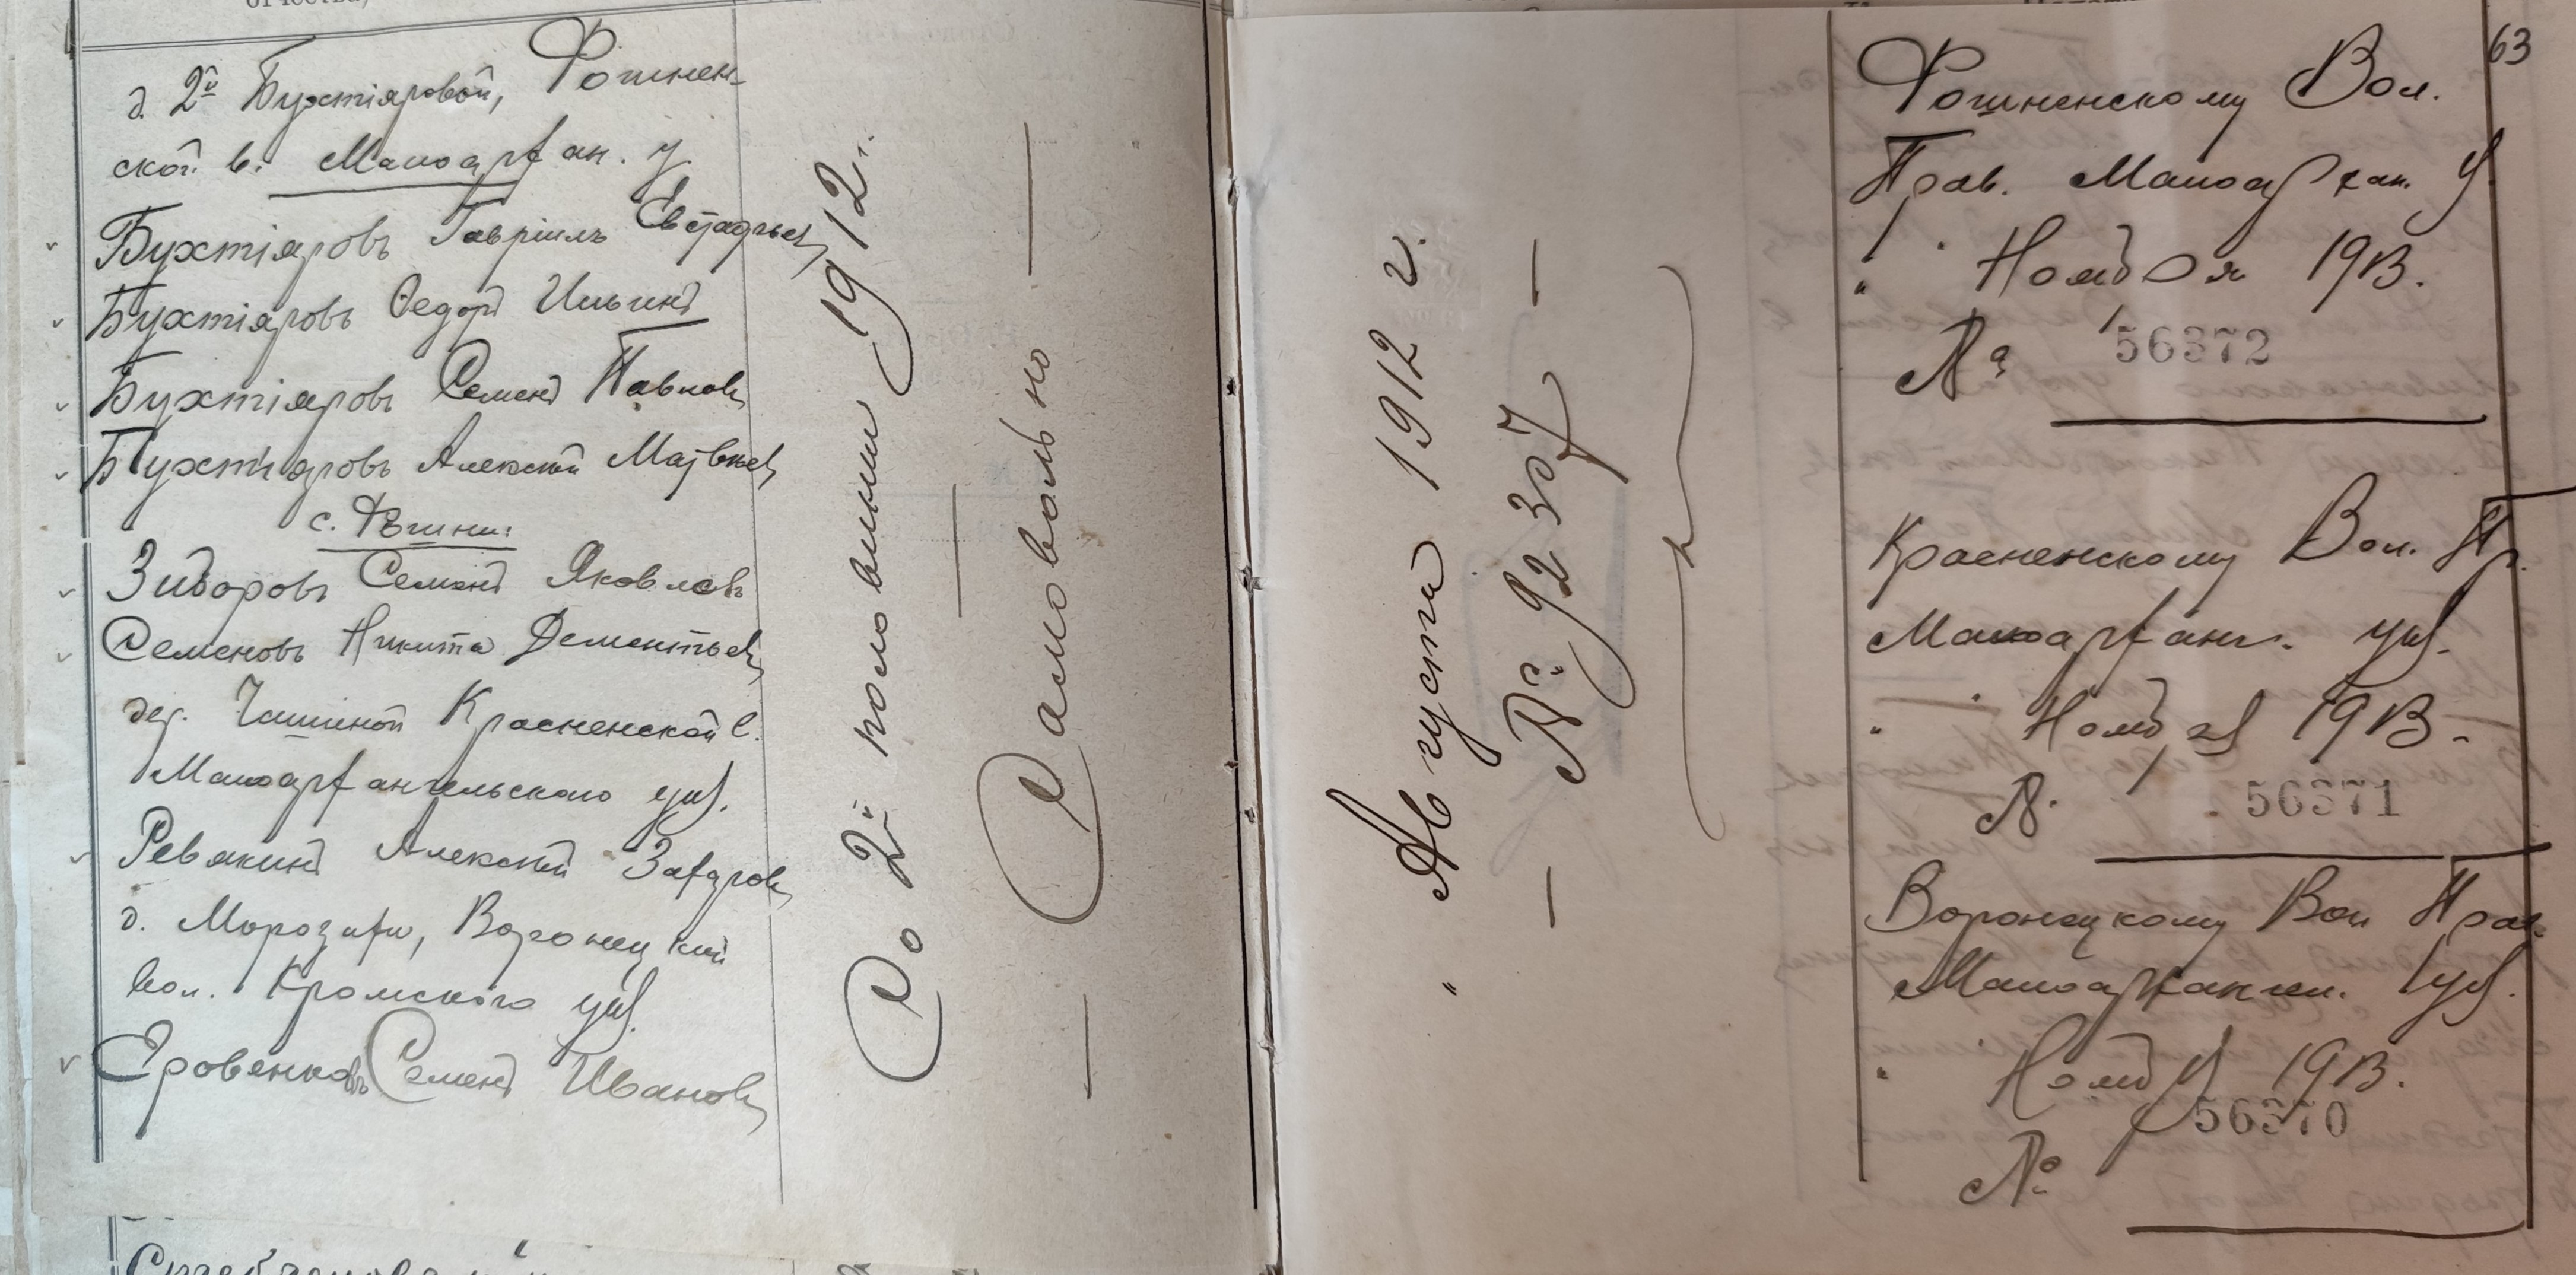 отчества)
д. 2й Бухтіяровой, Фошнен-
ской в. Малоарх ан. у.
Бухтіяровъ Гавріилъ Евстафьев
Бухтіяровъ Ѳедоръ Ильинъ
Бухтіяровъ Семенъ Павлов
Бухтіяровъ Алексѣй Матвѣев
с.
Зиборовъ Семенъ Яковлевъ
Семеновъ Никита Дементьев
дер. Красненской в.
Малоархангельскаго уѣз.
Ревякинъ Алексѣй Захаров
д. Морозихи, Воронецкий
вол. Кромского уѣз.
Еровенковъ Семенъ Иванов
Со 2й половины 1912 г.
— Самовольно —
" Августа 1912 г.
— № 92 307 —
63
Фошненскому Вол.
Прав. Малоархан. У.
" 1913.
№ 56372
Красненскому Вол. Пр.
Малоарханг. уѣз.
" 1913.
№ 56371
Воронецкому Вол Прав.
Малоархангел. уѣз.
" 1913.
56370
№